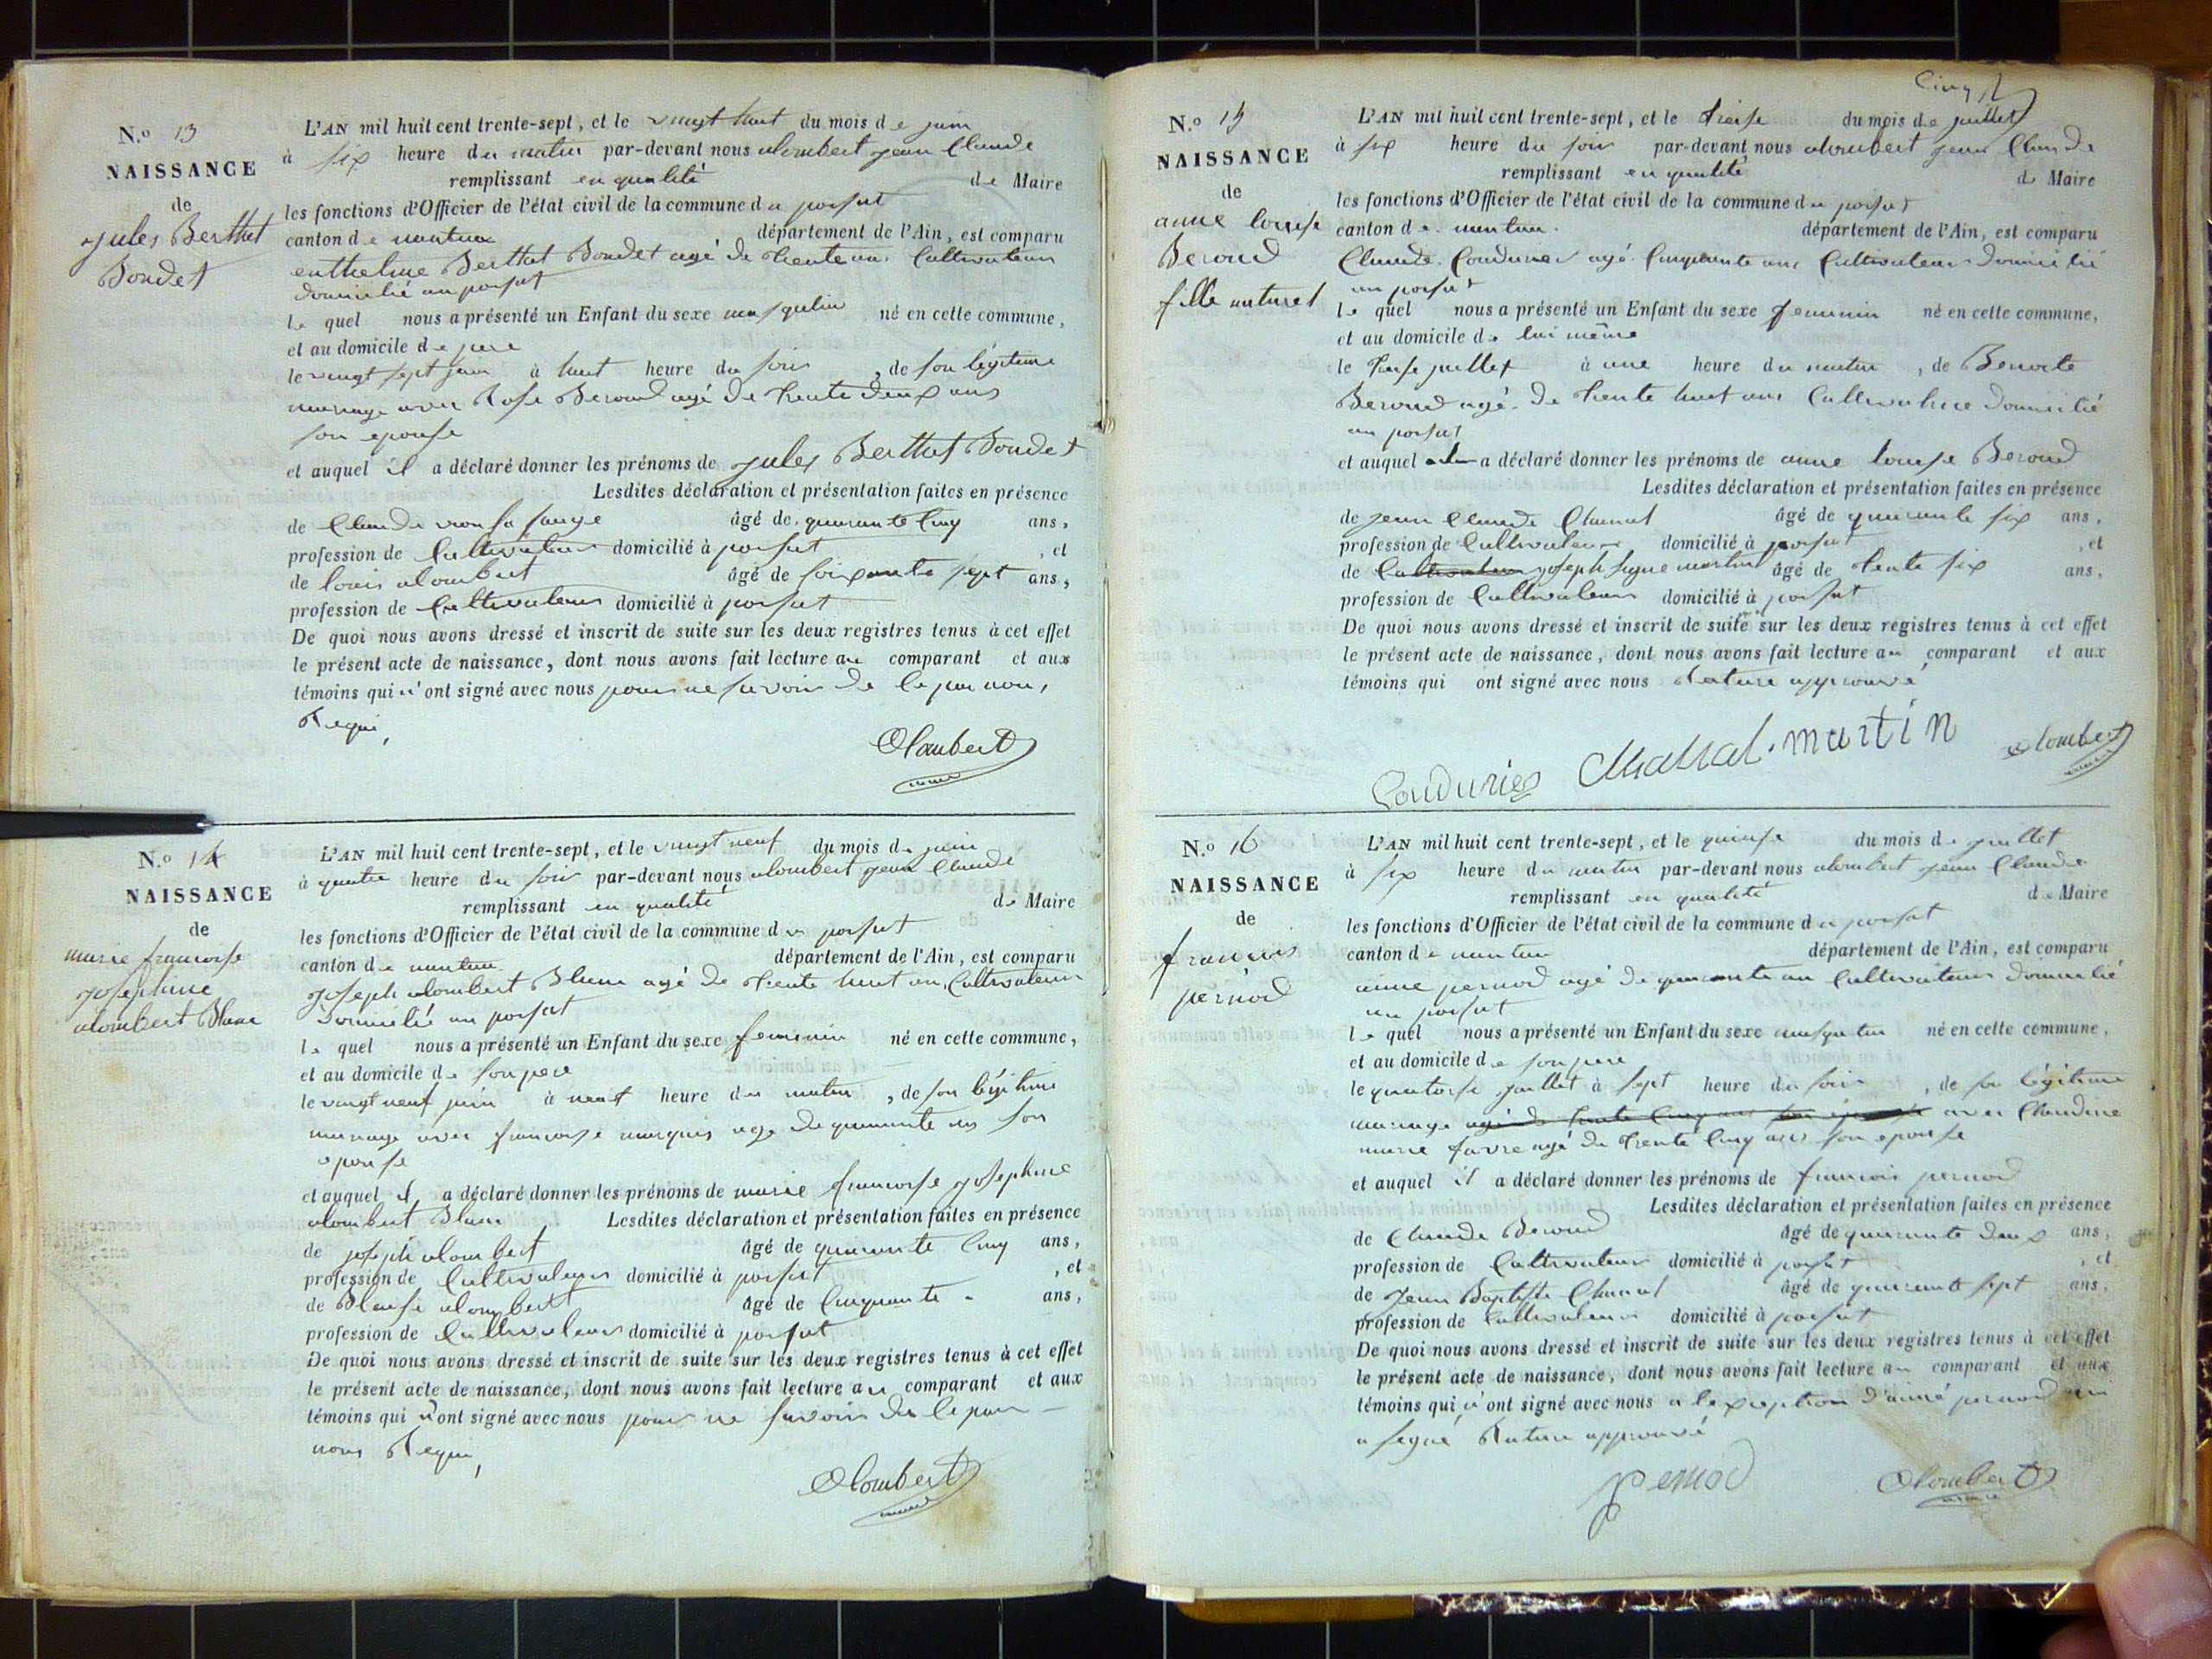 N.º 13
NAISSANCE
de
jules Berthet
Boudet
L'AN mil huit cent trente-sept, et le vingt huit du mois de juin
à six heure du matin par-devant nous alombert jean Claude
remplissant en qualité de Maire
les fonctions d'Officier de l'état civil de la commune du porsut
canton de nantua département de l'Ain, est comparu
Berthet Boudet agé de trente ans Cultivateur
domicilié au porsut
le quel nous a présenté un Enfant du sexe masqulin né en cette commune,
et au domicile de pere
le vingt sept juin à huit heure du soir, de son légitime
mariage avec Rose Beroud agé de trente deux ans
son epouse
et auquel il a déclaré donner les prénoms de jules Berthet Boudet
Lesdites déclaration et présentation faites en présence
de Claude âgé de quarante Cinq ans,
profession de Cultivateur domicilié à porsut, et
de louis alombert âgé de soixante sept ans,
profession de Cultivateur domicilié à porsut
De quoi nous avons dressé et inscrit de suite sur les deux registres tenus à cet effet
le présent acte de naissance, dont nous avons fait lecture au comparant et aux
témoins qui n'ont signé avec nous pour ne savoir de le par nous,
Requi,
Alombert
maire
N.º 14
NAISSANCE
de
marie francoise
josephine
alombert Blanc
L'AN mil huit cent trente-sept, et le vingt neuf du mois de juin
à quatre heure du soir par-devant nous alombert jean Claude
remplissant en qualité de Maire
les fonctions d'Officier de l'état civil de la commune du porsut
canton de nantua département de l'Ain, est comparu
joseph alombert Blanc agé de trente huit an, Cultivateur
domicilié au porsut
le quel nous a présenté un Enfant du sexe feminin né en cette commune,
et au domicile de son pere
le vingt neuf juin à neuf heure du matin, de son légitime
mariage avec francoise marquis age de quarante ans son
epouse
et auquel il a déclaré donner les prénoms de marie francoise josephine
alombert Blanc Lesdites déclaration et présentation faites en présence
de joseph alombert âgé de quarante Cinq ans,
profession de Cultivateur domicilié à porsut, et
de Blaise alombert âgé de Cinquante ans,
profession de Cultivateur domicilié à porsut
De quoi nous avons dressé et inscrit de suite sur les deux registres tenus à cet effet
le présent acte de naissance, dont nous avons fait lecture au comparant et aux
témoins qui n'ont signé avec nous pour ne savoir de le par
nous Requi,
Alombert
maire
Cinq
N.º 15
NAISSANCE
de
anne louise
Beroud
fille naturel
L'AN mil huit cent trente-sept, et le treise du mois de juillet
à six heure du soir par-devant nous alombert jean Claude
remplissant en qualité de Maire
les fonctions d'Officier de l'état civil de la commune du porsut
canton de nantua. département de l'Ain, est comparu
Claude Coudurier agé Cinquante ans Cultivateur domicilié
au porsut
le quel nous a présenté un Enfant du sexe feminin né en cette commune,
et au domicile de lui même
le treise juillet à une heure du matin, de Benoite
Beroud agé de trente huit ans Cultivatrice domicilié
au porsut
et auquel a déclaré donner les prénoms de anne louise Beroud
Lesdites déclaration et présentation faites en présence
de jean Claude Chanal âgé de quarante six ans,
profession de Cultivateur domicilié à porsut, et
de Cultivateur joseph martin âgé de trente six ans,
profession de Cultivateur domicilié à porsut
De quoi nous avons dressé et inscrit de suite sur les deux registres tenus à cet effet
le présent acte de naissance, dont nous avons fait lecture au comparant et aux
témoins qui ont signé avec nous Rature approuvé
Coudurier Chanal martin Alombert
maire
N.º 16
NAISSANCE
de
francois
pernod
L'AN mil huit cent trente-sept, et le quinse du mois de juillet
à six heure du matin par-devant nous alombert jean Claude
remplissant en qualité de Maire
les fonctions d'Officier de l'état civil de la commune du porsut
canton de nantua département de l'Ain, est comparu
aimé pernod agé de quarante an Cultivateur domicilié
au porsut
le quel nous a présenté un Enfant du sexe masqulin né en cette commune,
et au domicile de son pere
le quatorse juillet à sept heure du soir, de son légitime
mariage agé de trente Cinq ans son épouse avec Claudine
marie favre agé de trente Cinq ans son epouse
et auquel il a déclaré donner les prénoms de francois pernod
Lesdites déclaration et présentation faites en présence
de Claude Beroud âgé de quarante deux ans,
profession de Cultivateur domicilié à porsut, et
de Jean Baptiste Chanal âgé de quarante sept ans,
profession de Cultivateur domicilié à porsut
De quoi nous avons dressé et inscrit de suite sur les deux registres tenus à cet effet
le présent acte de naissance, dont nous avons fait lecture au comparant et aux
témoins qui n'ont signé avec nous a lexception d'aimé pernod qui
a signé Rature approuvé
pernod Alombert
maire